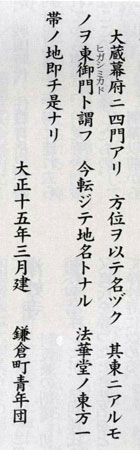 大蔵幕府ニ四門アリ　方位ヲ以テ名ヅク　其東ニアルモ
ノヲ東御門ト謂フ　今転ジテ地名トナル　法華堂ノ東方一
ヒガシミカド
帯ノ地即チ是ナリ
大正十五年三月建　鎌倉町青年団